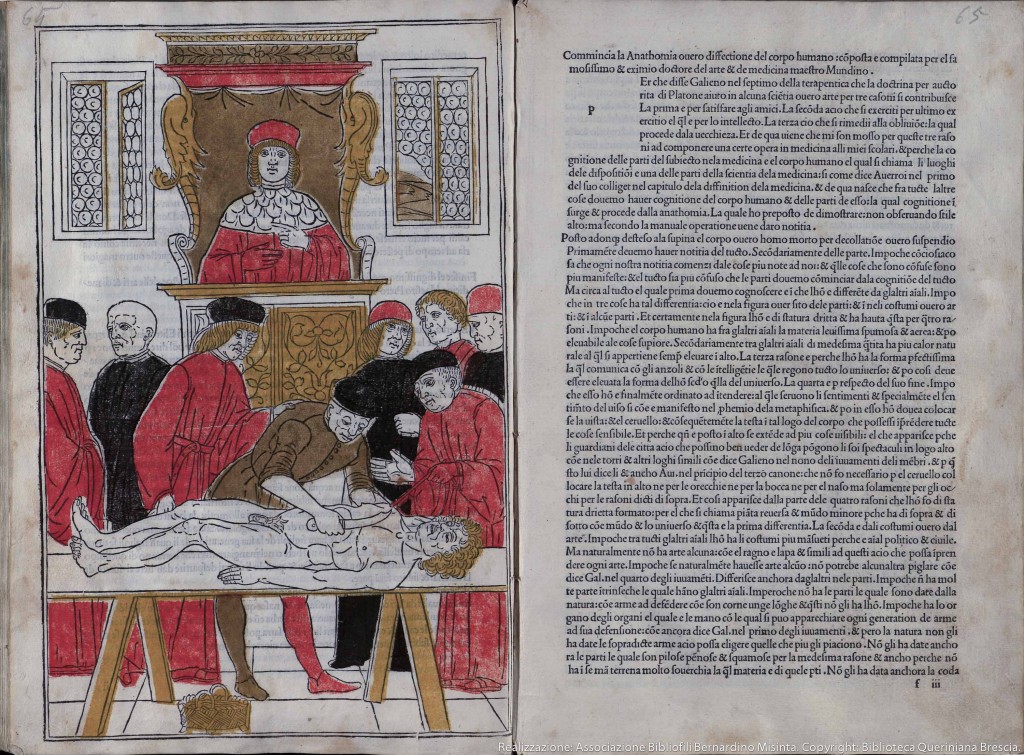 65
65
Commincia la Anathomia ouero dissectione del corpo humano : cõposta e compilata per el fa
mosissimo & eximio doctore del arte & de medicina maestro Mundino .
P
Er che disse Galieno nel septimo della terapentica che la doctrina per aucto
rita di Platone aiuto in alcuna sciẽtia ouero arte per tre casoni si contribuisce
La prima e per satisfare agli amici. La secõda acio che si exerciti per ultimo ex
ercitio el q̃l e per lo intellecto. La terza cio che si rimedii alla obliuiõe: la qual
procede dala uecchieza. Et de qua uiene che mi son mosso per queste tre raso
ni ad componere una certe opera in medicina alli miei scolari. &perche la co
gnitione delle parti del subiecto nela medicina e el corpo humano el qual si chiama li luoghi
dele dispositiõi e una delle parti della scientia dela medicina: si come dice Auerroi nel primo
del suo colliget nel capitulo dela diffinition dela medicina. & de qua nasce che fra tucte laltre
cose douemo hauer cognitione del corpo humano & delle parti de esso: la qual cognitione ĩ
surge & procede dalla anathomia. La quale ho preposto de dimostrare: non obseruando stile
alto: ma secondo la manuale operatione uene daro notitia .
Posto adonq; desteso ala supina el corpo ouero homo morto per decollatiõe ouero suspendio
Primamẽte deuemo hauer notitia del tucto. Secõdariamente delle parte. Impoche cõciosiaco
sa che ogni nostra notitia comenzi dale cose piu note ad noi: & q̃lle cose che sono cõfuse sono
piu manifeste: &el tucto sia piu cõfuso che le parti douemo cõminciar dala cognitiõe del tucto
Ma circa al tucto el quale prima douemo cognoscere e i che lhõ e differẽte da glaltri aĩali. Impo
che in tre cose ha tal differentia: cio e nela figura ouer sito dele parti: & ĩ neli costumi ouero ar
ti: & ĩ alcũe parti . Et certamente nela figura lhõ e di statura dritta & ha hauta q̃sta per q̃tro ra
soni . Impoche el corpo humano ha fra glaltri aĩali la materia leuissima spumosa & aerea: &po
eleuabile ale cose supiore. Secõdariamente tra glaltri aĩali di medesima q̃tita ha piu calor natu
rale al q̃l si appertiene semp̃ eleuare i alto. La terza rasone e perche lhõ ha la forma pfectissima
la q̃l comunica cõ gli anzoli & cõ le ĩtelligẽtie le q̃le regono tucto lo uniuerso: & po cosi deue
essere eleuata la forma delhõ secõd'o q̃lla del uniuerso. La quarta e p respecto del suo fine . Impo
che esso hõ e finalmẽte ordinato ad ĩtendere: al q̃le seruono li sentimenti & specialmẽte el sen
timẽto del uiso si cõe e manifesto nel phemio dela metaphisica. & po in esso hõ douea colocar
se la uista: & el ceruello: &cõsequẽtemẽte la testa ĩ tal logo del corpo che possessi ĩprẽdere tucte
le cose sensibile. Et perche qñ e posto ĩ alto se extẽde ad piu cose uisibili: el che apparisce pche
li guardiani dele citta acio che possino ben ueder de lõga põgono li soi spectaculi in logo alto
cõe nele torri & altri loghi simili cõe dice Galieno nel nono deli iuuamenti deli mẽbri . & p q̃
sto lui dice li & ancho Aui. nel pricipio del terzo canone: che nõ fo necessario p el ceruello col
locare la testa in alto ne per le orecchie ne per la bocca ne per el naso ma solamente per gli oc
chi per le rasoni dicti di sopra. Et cosi apparisce dalla parte dele quatro rasoni che lhõ so di sta
tura drietta formato: per el che si chiama piãta reuersa & mũdo minore pche ha di sopra & di
sotto cõe mũdo & lo uniuerso &q̃sta e la prima differentia. La secõda e dali costumi ouero dal
arte. Impoche tra tucti glaltri aĩali lhõ ha li costumi piu mãsueti perche e aĩal politico & ciuile.
Ma naturalmente nõ ha arte alcuna: cõe el ragno e lapa & simili ad questi acio che possa ipren
dere ogni arte. Impoche se naturalmẽte hauesse arte alcũo: nõ potrebe alcunaltra piglare cõe
dice Gal. nel quarto degli iuuamẽti. Differisce anchora daglaltri nele parti. Impoche ñ ha mol
te parte ĩtrinseche le quale hãno glaltri aĩali. Imperoche nõ ha le parti le quale sono date dalla
natura: cõe arme ad defẽdere cõe son corne unge lõghe &q̃sti nõ gli ha lhõ. Impoche ha lo or
gano degli organi el quale e le mano cõ le qual si puo apparechiare ogni generation de arme
ad sua defensione: cõe ancora dice Gal. nel primo degli iuuamenti . & pero la natura non gli
ha date le sopradicte arme acio possa eligere quelle che piu gli piaciono . Nõ gli ha date ancho
ra le parti le quale son pilose pẽnose & squamose per la medesima rasone & ancho perche nõ
ha i se mã terrena molto souerchia la q̃l materia e di quele pti . Nõ gli ha data anchora la coda
f iii
Realizzazione: Associazione Bibliofili Bernardino Misinta Copyright: Biblioteca Queriniana Brescia